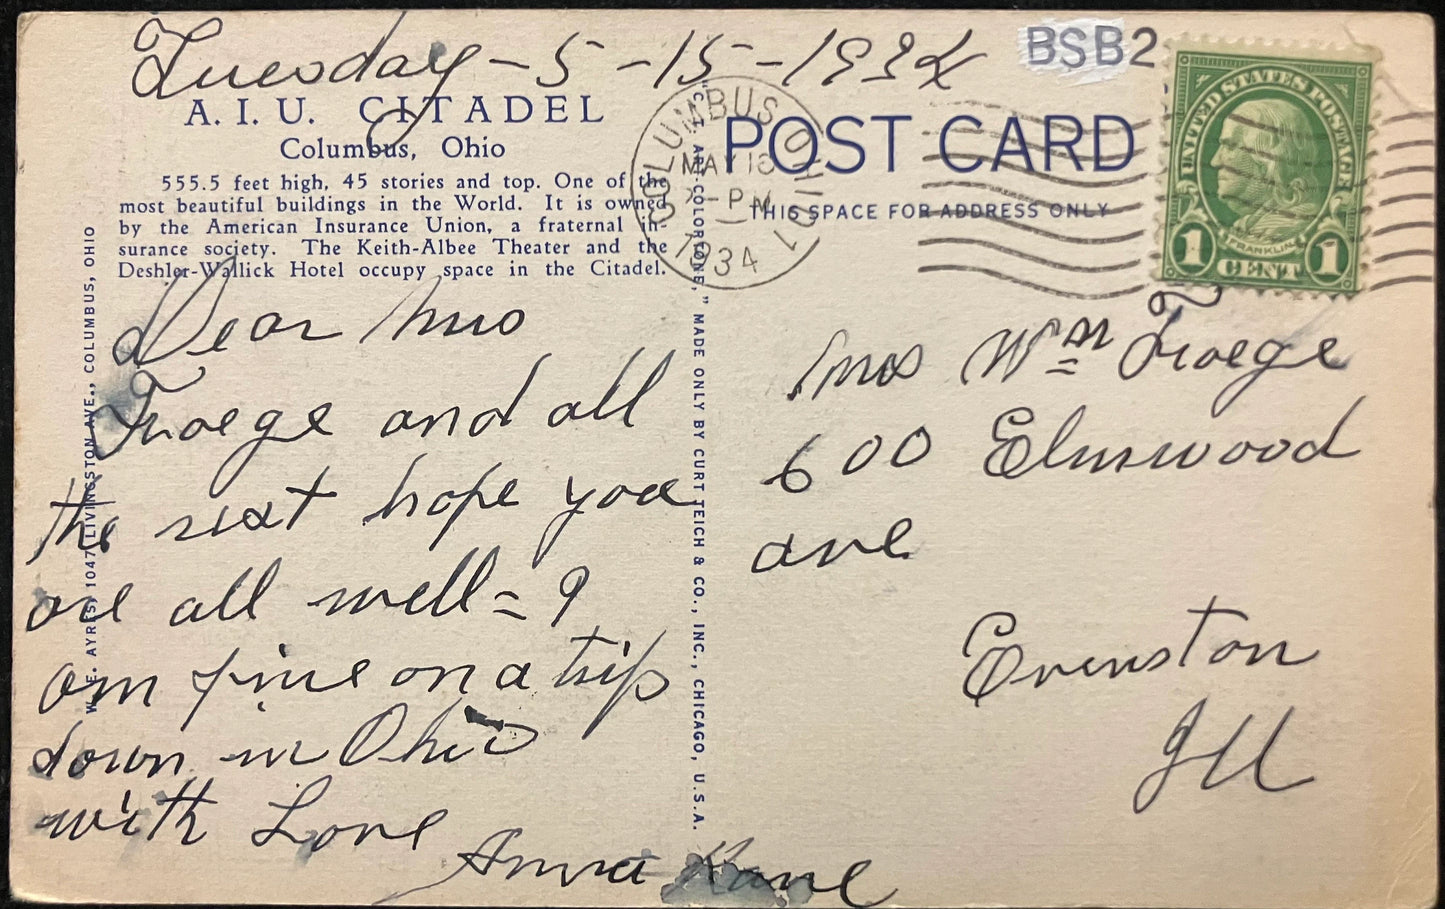 Tuesday - 5 - 15 - 1934
BSB2
A. I. U. CITADEL
Columbus, Ohio
555.5 feet high, 45 stories and top. One of the
most beautiful buildings in the World. It is owned
by the American Insurance Union, a fraternal in-
surance society. The Keith-Albee Theater and the
Deshler-Wallick Hotel occupy space in the Citadel.
W. E. AYRES, 1047 LIVINGSTON AVE., COLUMBUS, OHIO
Dear Mrs
Troege and all
the rest hope you
are all well = I
am fine on a trip
down in Ohio
with Love
Anna Kane
"C.T. ART-COLORTONE," MADE ONLY BY CURT TEICH & CO., INC., CHICAGO, U.S.A.
COLUMBUS OHIO 1
MAY 15
PM
1934
POST CARD
THIS SPACE FOR ADDRESS ONLY
UNITED STATES POSTAGE
FRANKLIN
1 CENT 1
Mrs Wm Troege
600 Elmwood
ave
Evenston
Ill